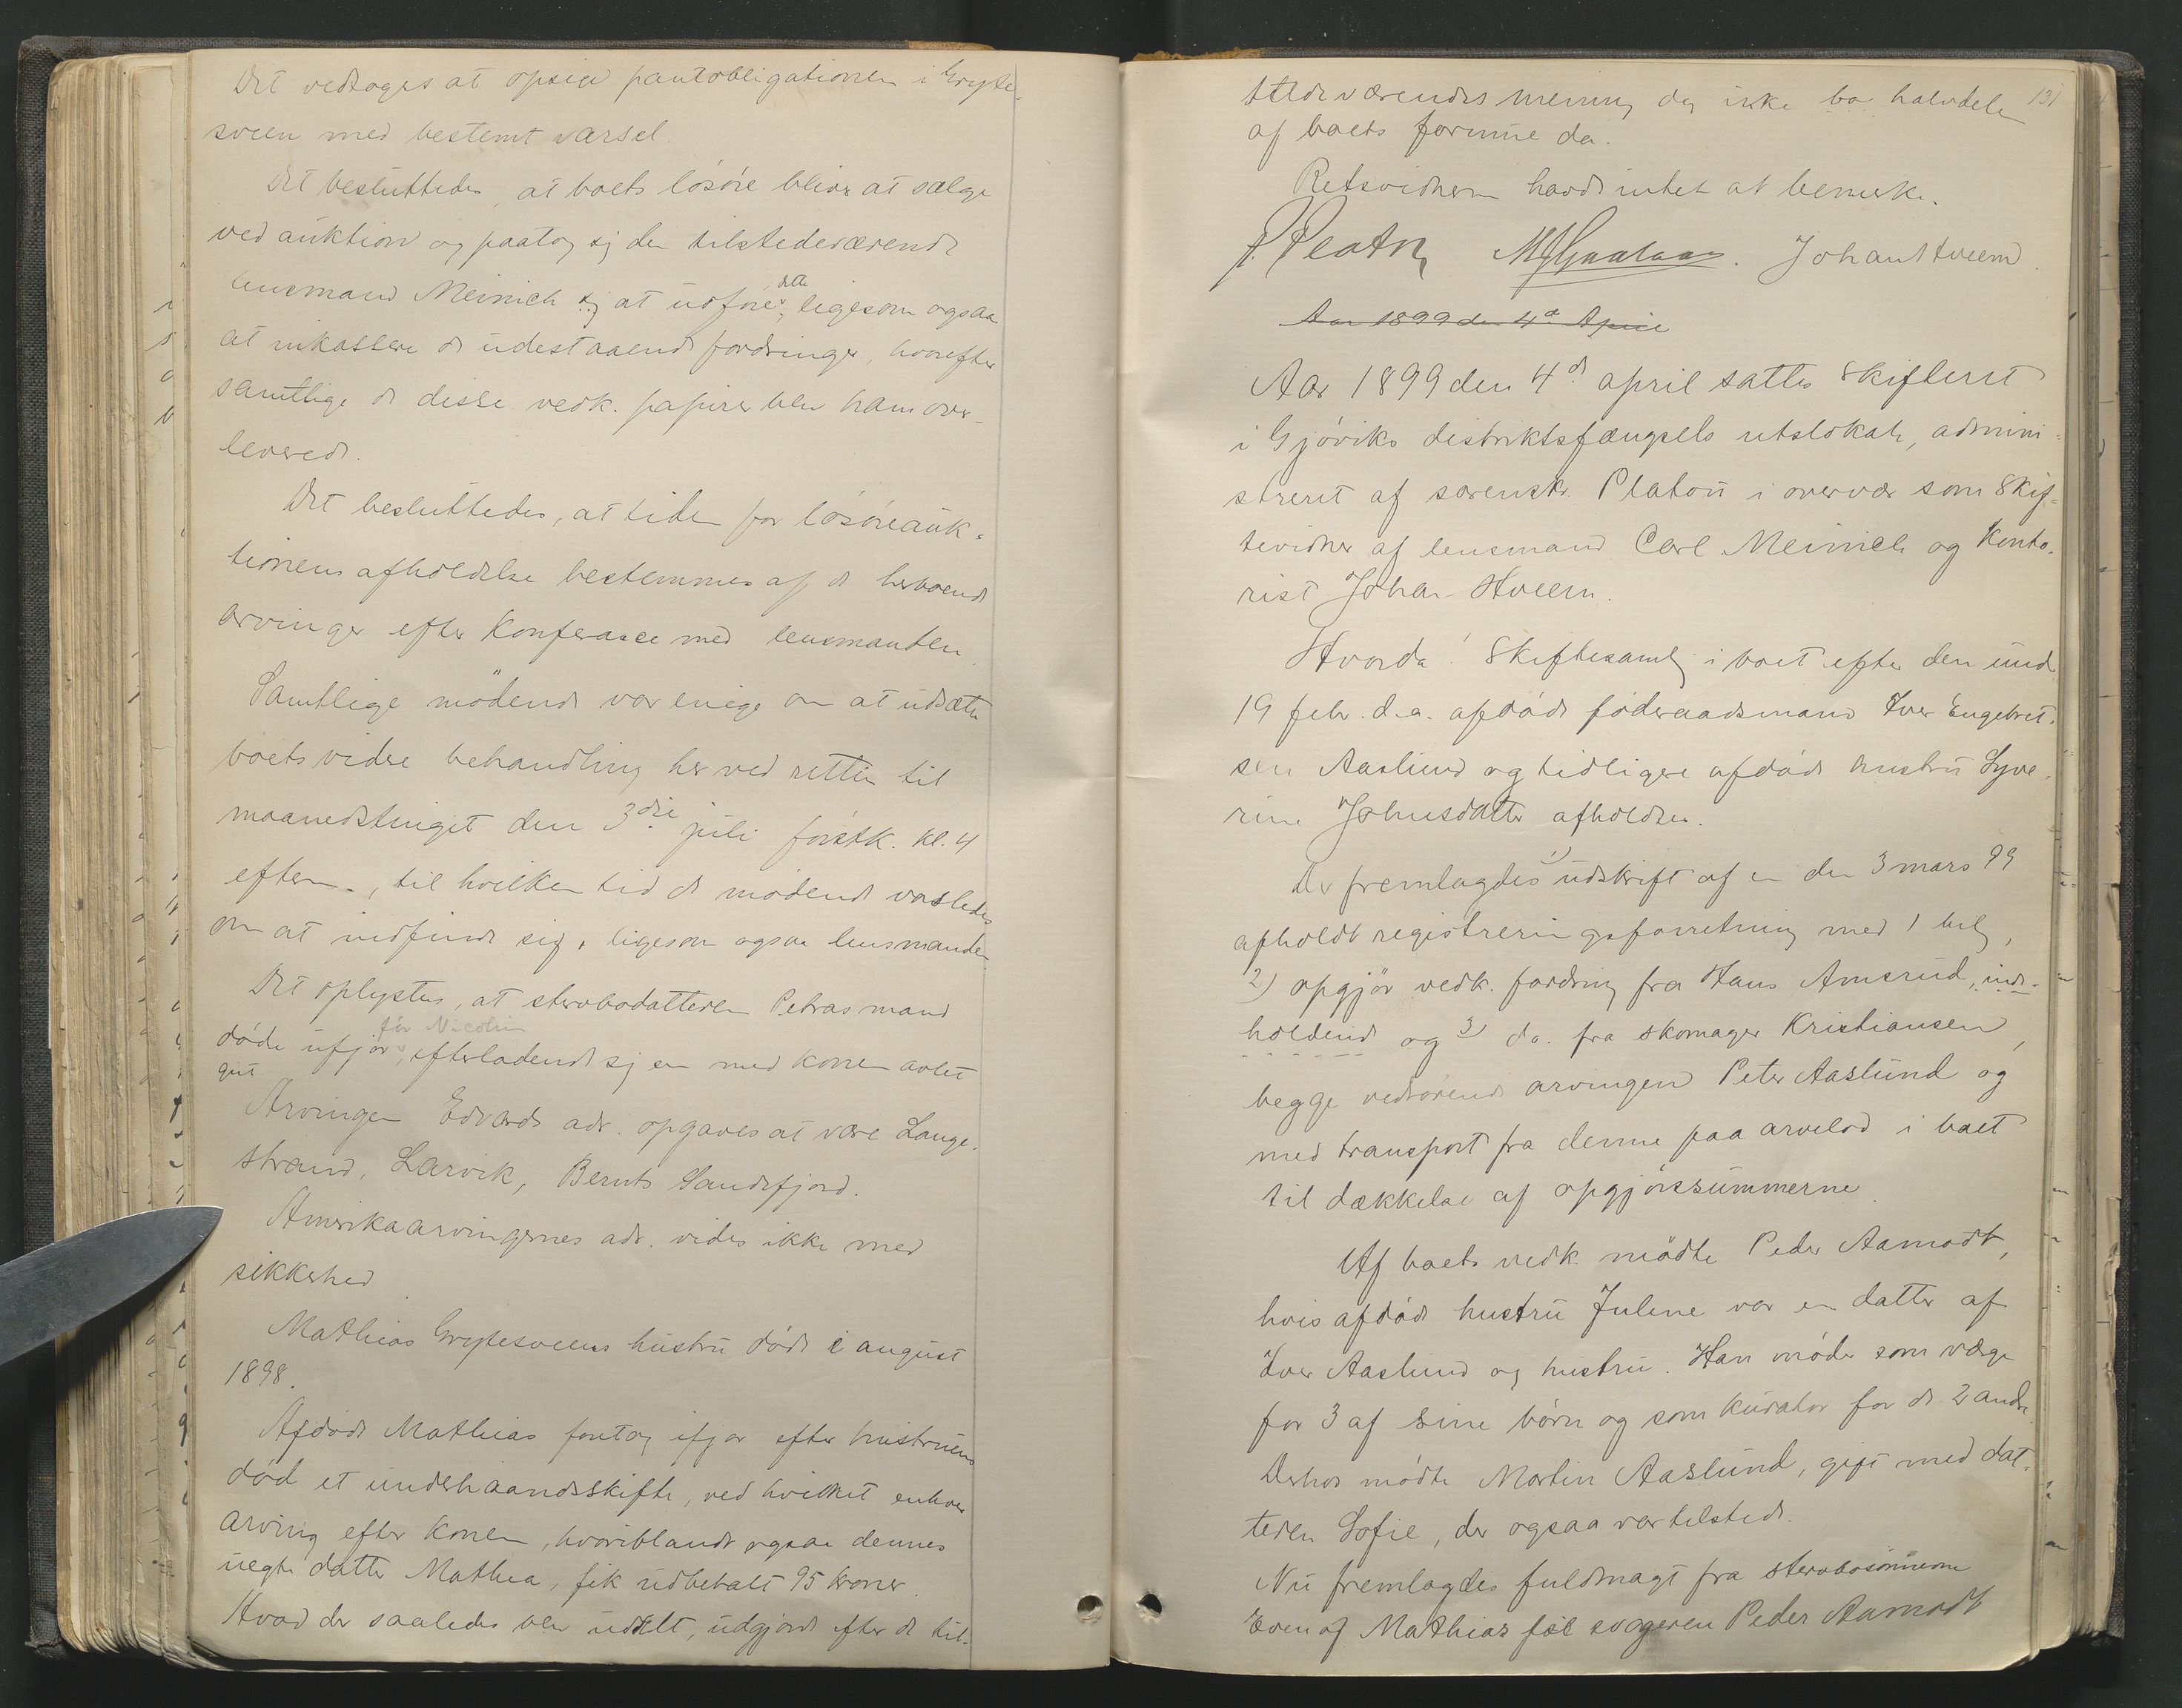 Det vedtoges at opsige pantobligationen i Gryte-
sveen med bestemt varsel.
Det besluttedes, at boets lösöre bliver at sælge
ved auktion og paatog sig den tilstedeværende
lensmand Meinich sig at udføre dette, ligesom ogsaa
at inkassere de udestaaende fordringer, hvorefter
samtlige de disse vedk. papirer blev ham over-
leverede.
Det besluttedes, at tiden for lösöreauk-
tionens afholdelse bestemmes af de herboende
arvinger efter Konferance med lensmanden.
Samtlige mödende var enige om at udsætte
boets videre behandling her ved retten til
maanedstinget den 3die juli förstk. kl. 4
efterm., til hvilken tid de mödende varsledes
om at indfinde sig, ligesom ogsaa lensmanden.
Det oplystes, at stervbodatteren Petras mand
för Nicolin
döde ifjor, efterladende sig en med konen avlet
gut.
Arvingen Edvards adr. opgaves at være Lange-
strand, Larvik, Bernts Sandefjord.
Amerikaarvingernes adr. vides ikke med
sikkerhed
Mathias Grytesveens hustru döde i august
1898.
Afdöde Mathias foretog ifjor efter hustruens
död et underhaandsskifte, ved hvilket enhver
arving efter konen, hvoriblandt ogsaa dennes
uegte datter Mathea, fik udbetalt 95 kroner.
Hvad der saaledes blev uddelt, udgjorde efter de til-
131
stedeværendes mening dog ikke halvdelen
af boets formue da.
Retsvidnerne havde intet at bemerke.
Johan Hveem.
Aar 1899 den 4de April
Aar 1899 den 4de april sattes Skifteret
i Gjöviks distriktsfængsels retslokale, admini-
streret af sorenskr. Platou i overvær som Skif-
tevidner af lensmand Carl Meinich og Konto-
rist Johan Hveem.
Hvorda: Skiftesamling i boet efter den under
19 febr. d.a. afdöde föderaadsmand Iver Engebret-
sen Aaslund og tidligere afdöde hustru Syve-
rine Johnsdatter afholdtes.
Der fremlagdes 1) udskrift af en den 3 mars 99
afholdt registreringsforretning med 1 bilag,
2) opgjör vedk. fordring fra Hans Amsrud, inde-
holdende og 3) do. fra skomager Kristiansen,
begge vedrörende arvingen Peter Aaslund og
med transport fra denne paa arvelod i boet
til dækkelse af opgjörssummerne.
Af boets vedk. mödte Peder Aamodt,
hvis afdöde hustru Julene var en datter af
Iver Aaslund og hustru. Han möder som værge
for 3 af sine börn og som Kurator for de 2 andre.
Derhos mödte Martin Aaslund, gift med dat-
teren Sofie, der ogsaa var tilstede.
Nu fremlagdes fuldmagt fra stervbosönnerne
Even og Mathias for svogeren Peder Aamodt